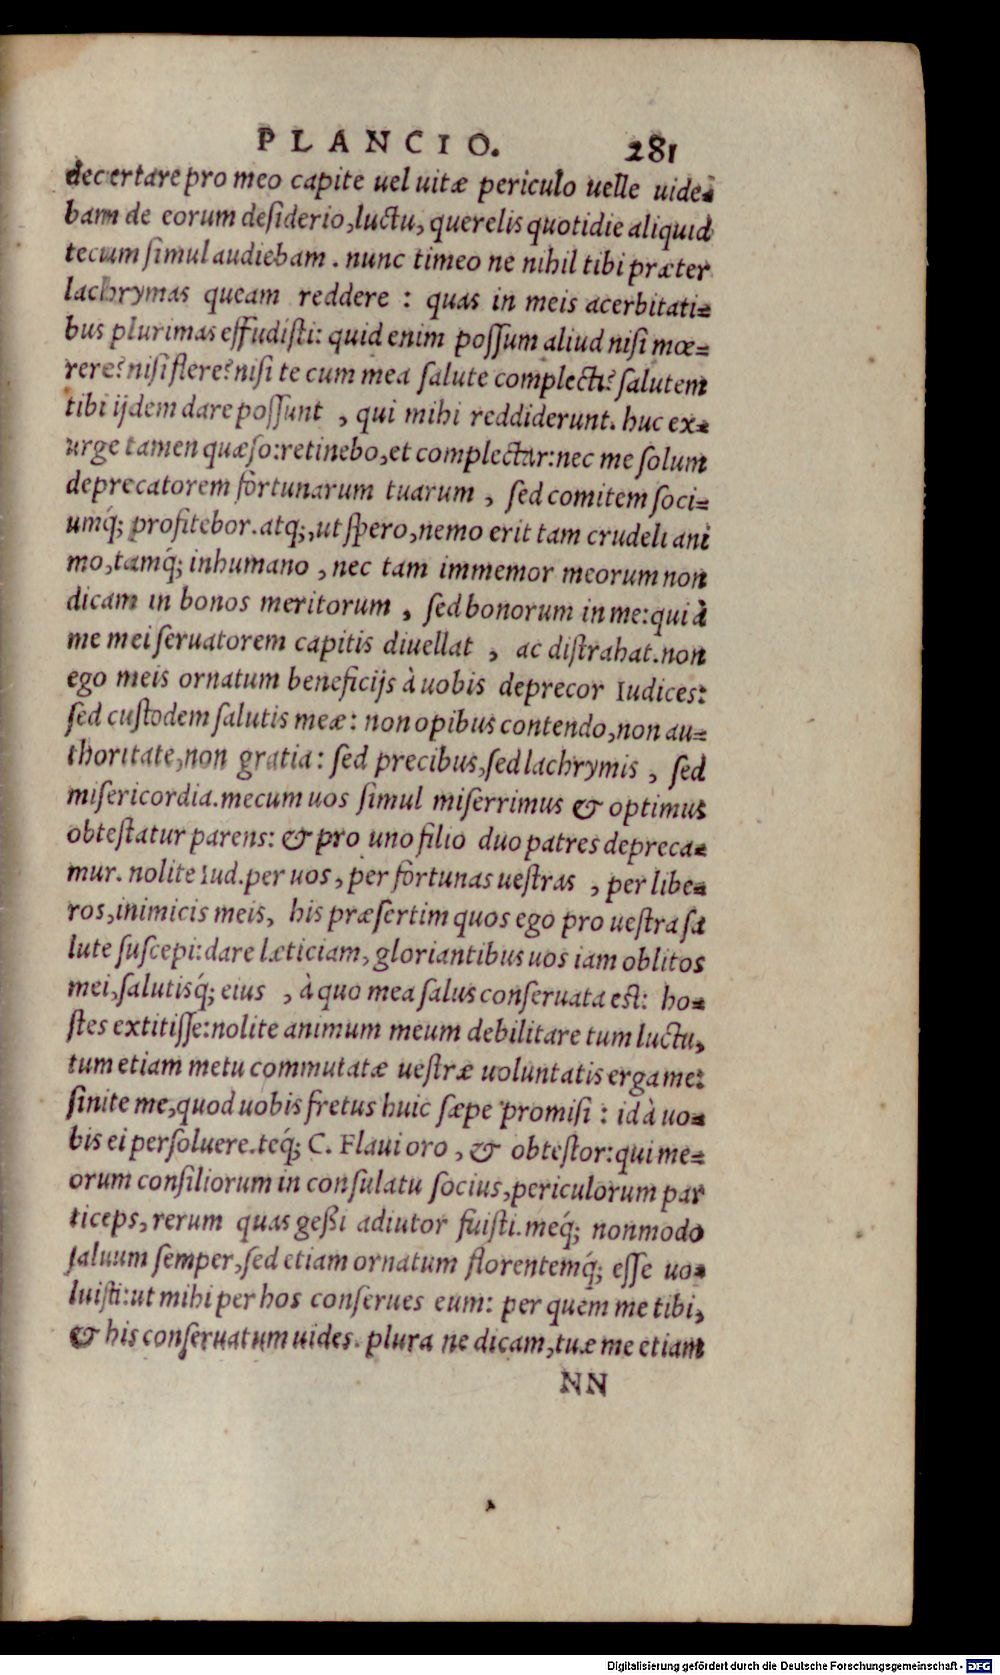 PLANCIO. 281
decertare pro meo capite uel uitæ periculo uelle uide=
bam de eorum desiderio, luctu, querelis quotidie aliquid
tecum simul audiebam. nunc timeo ne nihil tibi præter
lachrymas queam reddere: quas in meis acerbitati=
bus plurimas effudisti: quid enim possum aliud nisi mœ=
rere? nisi flere? nisi te cum mea salute complecti? salutem
tibi ijdem dare possunt, qui mihi reddiderunt. huc ex=
urge tamen quæso: retinebo, et complectar: nec me solum
deprecatorem fortunarum tuarum, sed comitem soci=
umq́; profitebor. atq;, ut spero, nemo erit tam crudeli ani
mo, tamq́; inhumano, nec tam immemor meorum non
dicam in bonos meritorum, sed bonorum in me: qui à
me mei seruatorem capitis diuellat, ac distrahat. non
ego meis ornatum beneficijs à uobis deprecor Iudices:
sed custodem salutis meæ: non opibus contendo, non au=
thoritate, non gratia: sed precibus, sed lachrymis, sed
misericordia. mecum uos simul miserrimus & optimus
obtestatur parens: & pro uno filio duo patres depreca=
mur. nolite Iud. per uos, per fortunas uestras, per libe=
ros, inimicis meis, his præsertim quos ego pro uestra sa
lute suscepi: dare læticiam, gloriantibus uos iam oblitos
mei, salutisq́; eius, à quo mea salus conseruata est: ho=
stes extitisse: nolite animum meum debilitare tum luctu,
tum etiam metu commutatæ uestræ uoluntatis erga me:
sinite me, quod uobis fretus huic sæpe promisi: id à uo=
bis ei persoluere. teq́; C. Flaui oro, & obtestor: qui me=
orum consiliorum in consulatu socius, periculorum par
ticeps, rerum quas geßi adiutor fuisti. meq́; nonmodo
saluum semper, sed etiam ornatum florentemq́; esse uo=
luisti: ut mihi per hos conserues eum: per quem me tibi,
& his conseruatum uides. plura ne dicam, tuæ me etiam
NN
Digitalisierung gefördert durch die Deutsche Forschungsgemeinschaft - DFG